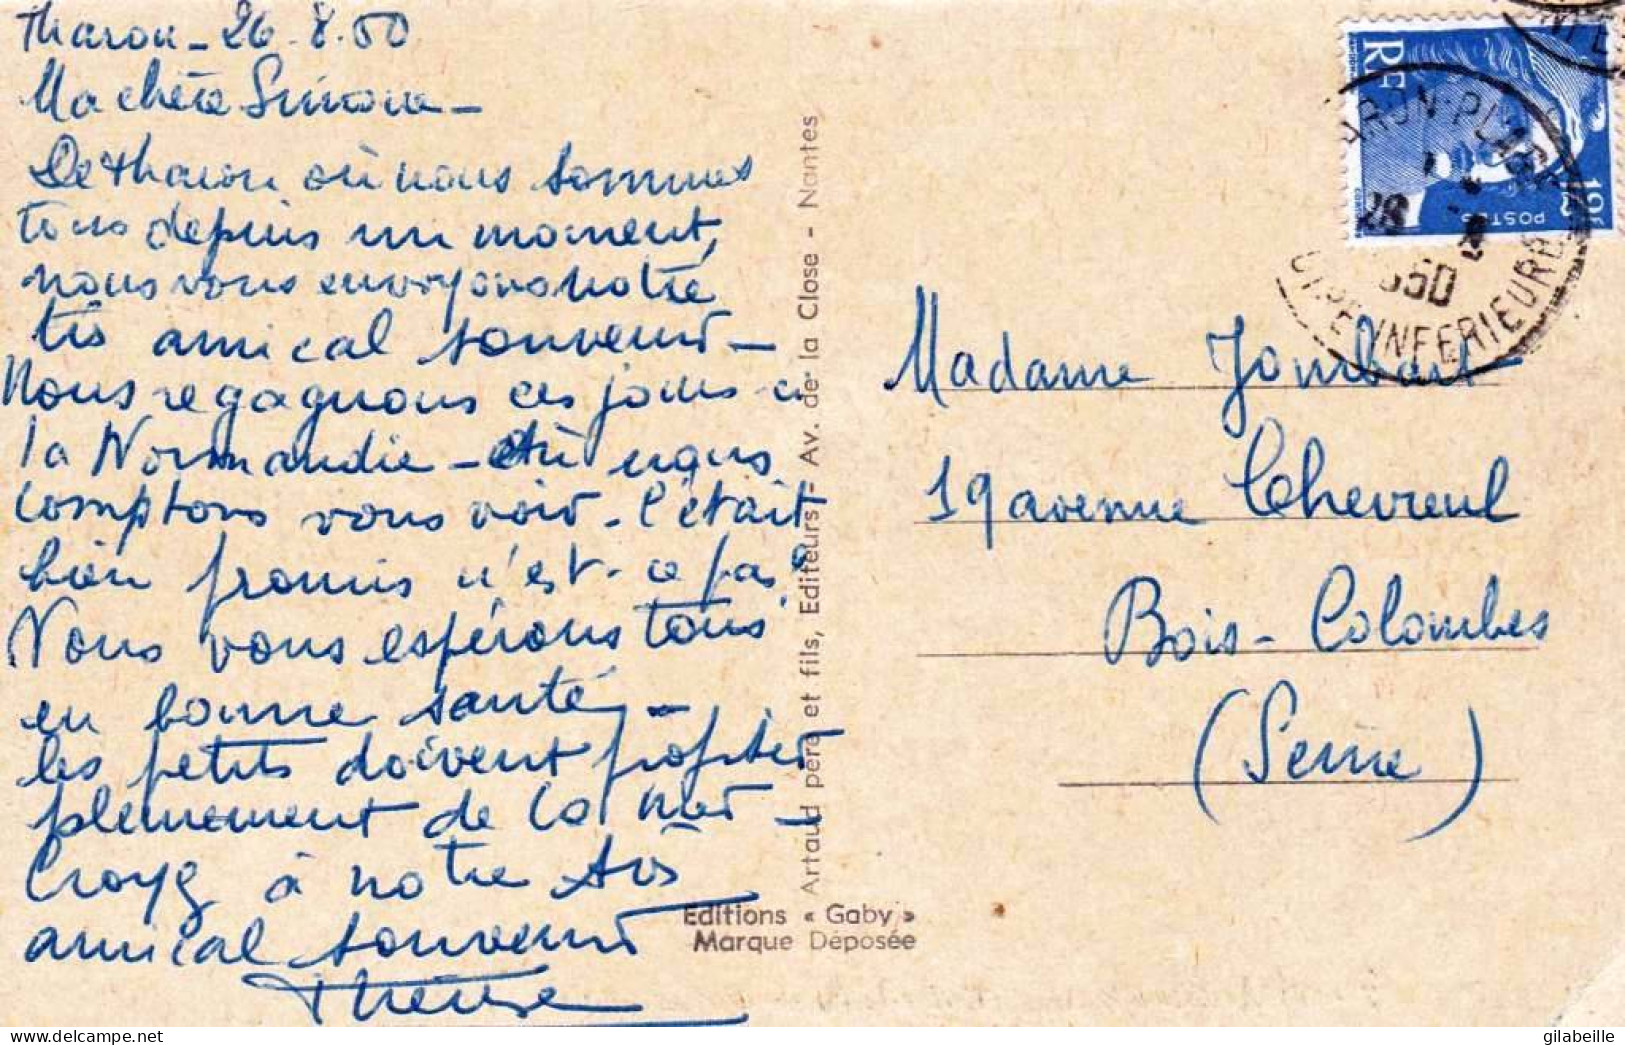 Tharon - 26.8.50
Ma chère Simone -
De Tharon où nous sommes
tous depuis un moment,
nous vous envoyons notre
très amical souvenir -
Nous regagnons ces jours-ci
la Normandie - où nous
comptons vous voir. C'était
bien promis n'est-ce pas?
Nous vous espérons tous
en bonne santé -
les petits doivent profiter
pleinement de la mer -
Croyez à notre très
amical souvenir
Thérèse
Artaud père et fils, Editeurs - Av. de la Close - Nantes
Editions « Gaby »
Marque Déposée
RF
POSTES
12F
ARON-PLAGE
26
950
INFERIEURE
Madame Jombart
19 avenue Chevreul
Bois-Colombes
(Seine)
www.delcampe.net
gilabeille